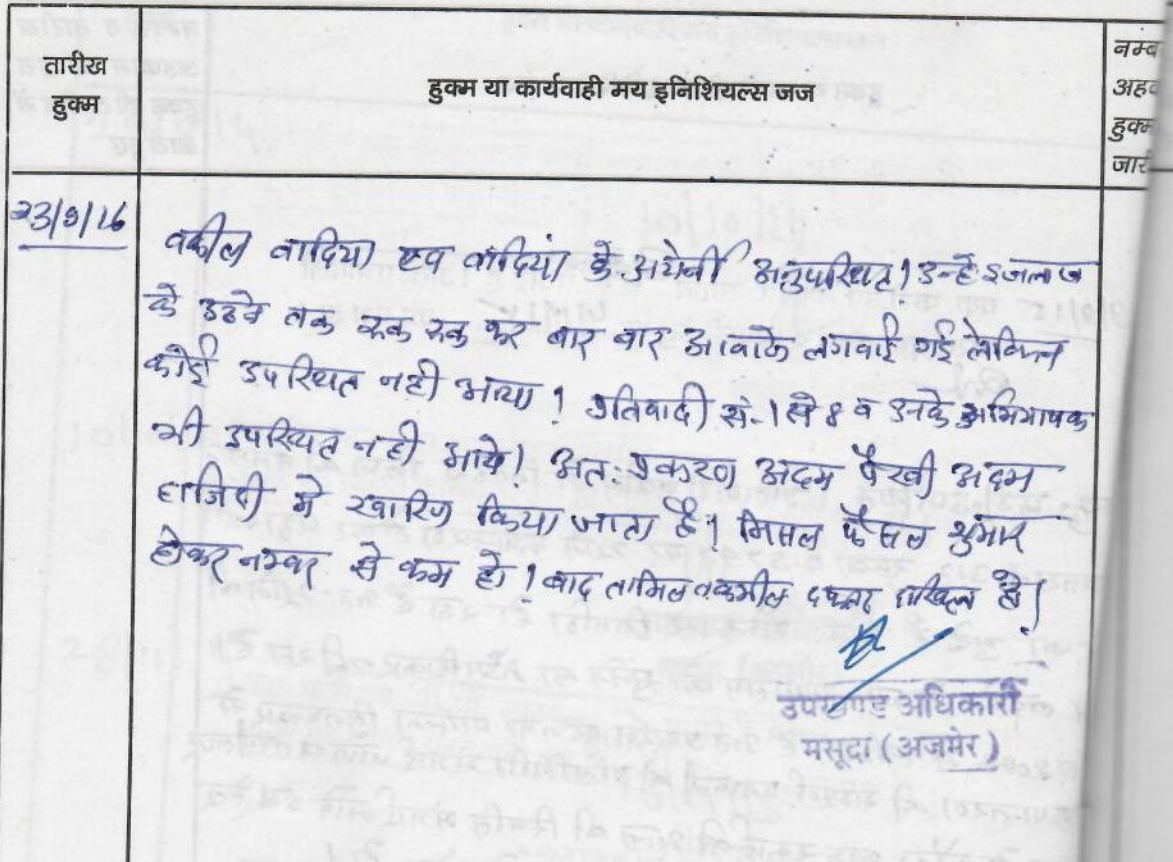 तारीख
हुक्म
हुक्म या कार्यवाही मय इनिशियल्स जज
नम्ब
अह
हुक्म
जार
23/9/16
वकील वादिया एव वादिया के अनुपस्थित। उन्हे इजलास
के उठने तक रूक रूक कर बार बार आवाजे लगवाई गई लेकिन
कोई उपस्थित नही आया। प्रतिवादी सं.-1 से 8 व उनके अभिभाषक
भी उपस्थित नही आये। अतः प्रकरण अदम पैरवी अदम
हाजिरी मे खारिज किया जाता है। मिसल फैसल शुमार
होकर नम्बर से कम हो। बाद तामिल तकमील दफ्तर दाखिल हो।
उपखण्ड अधिकारी
मसूदा (अजमेर)